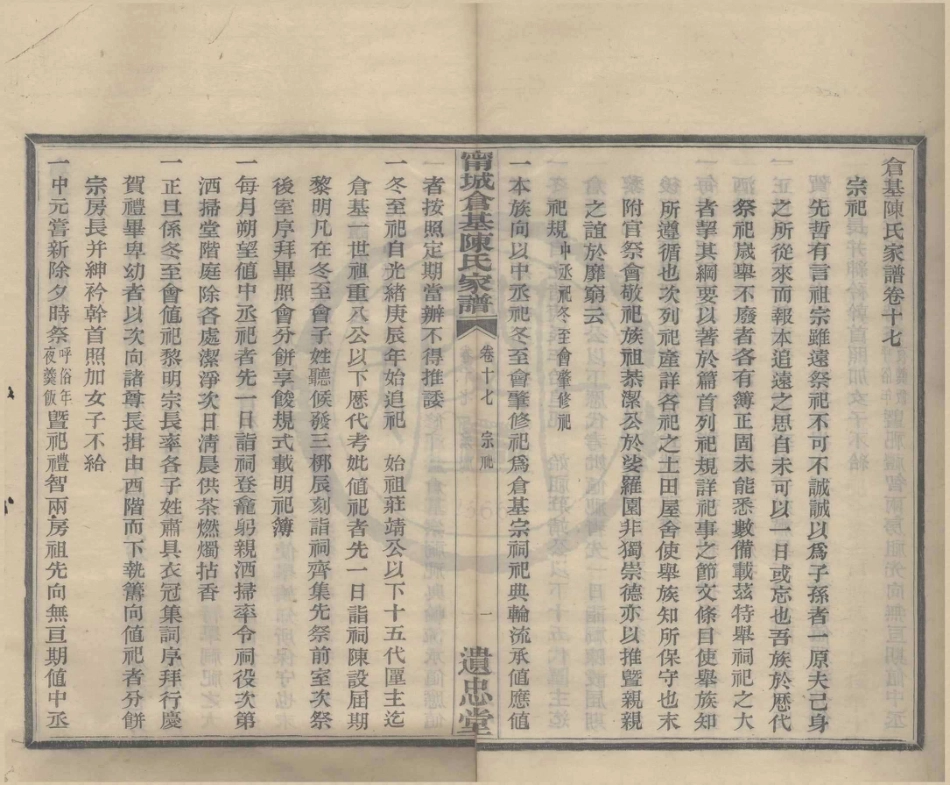 倉基陳氏家譜卷十七
宗祀
先哲有言祖宗雖遠祭祀不可不誠誠以為子孫者一原夫己身
之所從來而報本追遠之思自未可以一日或忘也吾族於歷代
祭祀歲舉不廢者各有簿正固未能悉數備載茲特舉祠祀之大
者挈其綱要以著於篇首列祀規詳祀事之節文條目使舉族知
所遵循也次列祀產詳各祀之土田屋舍使舉族知所保守也末
附官祭會敬祀族祖恭潔公於娑羅園非獨崇德亦以推暨親親
之誼於靡窮云
祀規中丞祀冬至會肇修祀
一本族向以中丞祀冬至會肇修祀為倉基宗祠祀典輪流承值應值
甯城倉基陳氏家譜 卷十七 宗祀 一 遺忠堂
者按照定期當辦不得推諉
一冬至祀自光緒庚辰年始追祀 始祖莊靖公以下十五代匰主迄
倉基一世祖重八公以下歷代考妣值祀者先一日詣祠陳設屆期
黎明凡在冬至會子姓聽候發三梆辰刻詣祠齊集先祭前室次祭
後室序拜畢照會分餅享餕規式載明祀簿
一每月朔望值中丞祀者先一日詣祠登龕躬親洒掃率令祠役次第
洒掃堂階庭除各處潔淨次日清晨供茶燃燭拈香
一正旦係冬至會值祀黎明宗長率各子姓肅具衣冠集祠序拜行慶
賀禮畢卑幼者以次向諸尊長揖由西階而下執籌向值祀者分餅
宗房長并紳衿幹首照加女子不給
一中元嘗新除夕時祭俗呼年夜羹飯暨祀禮智兩房祖先向無亘期值中丞